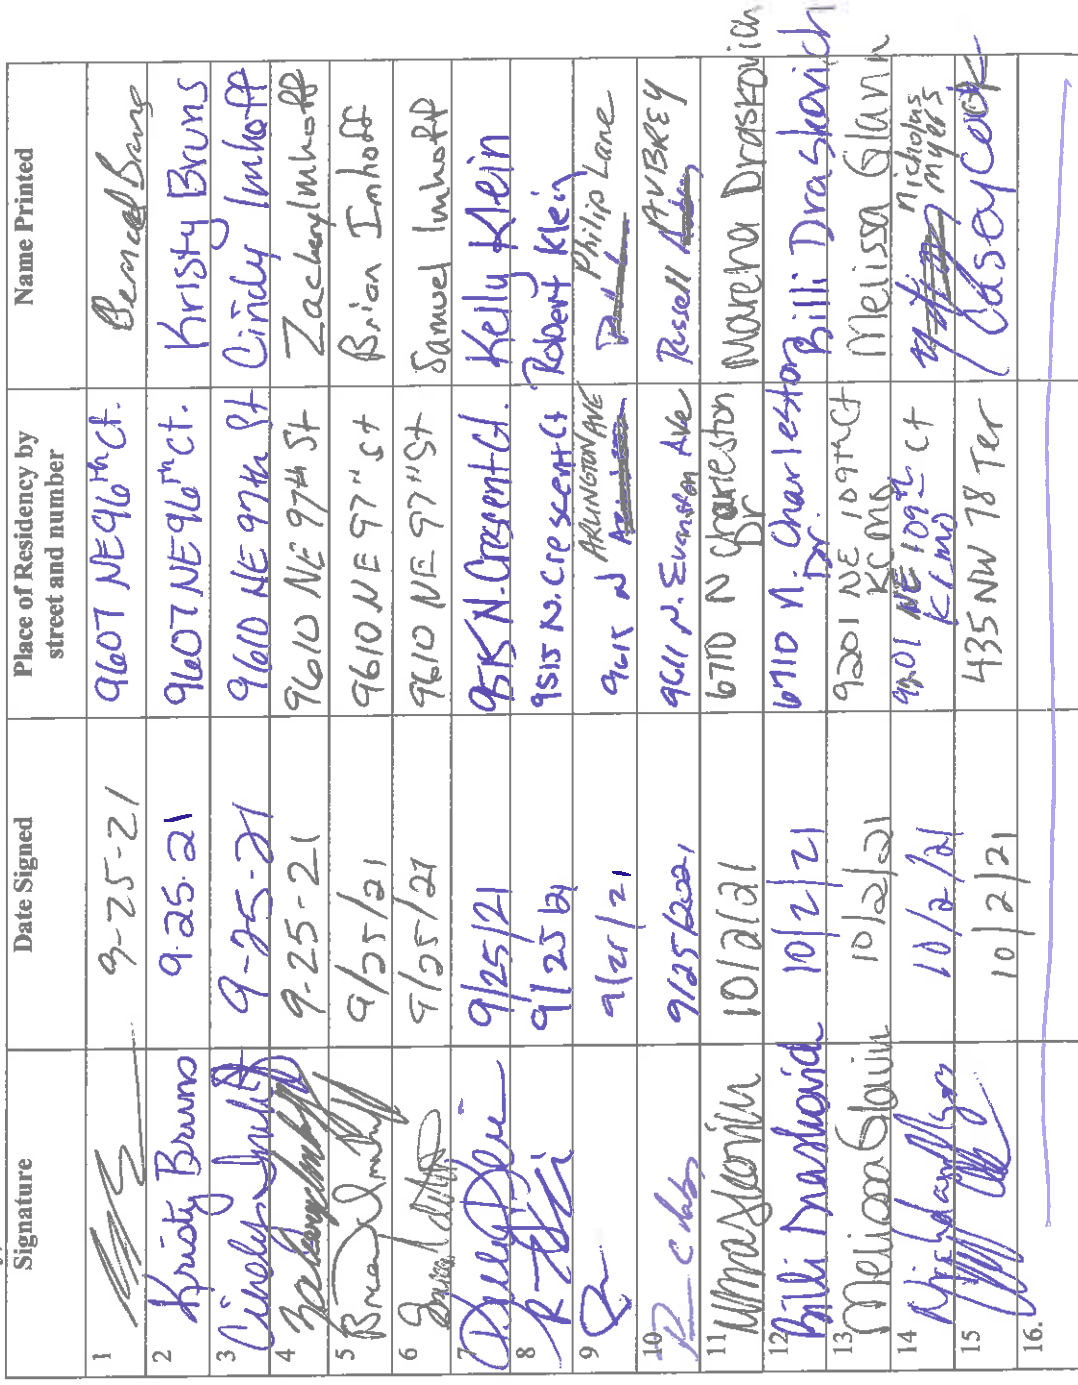 Signature Date Signed Place of Residency by street and number Name Printed
1 9-25-21 9607 NE 96th Ct. Bruns
2 Kristy Bruns 9-25-21 9607 NE 96th Ct. Kristy Bruns
3 Cindy Imhoff 9-25-21 9610 NE 97th St Cindy Imhoff
4 Zachery Imhoff 9-25-21 9610 NE 97th St Zachery Imhoff
5 Brian Imhoff 9/25/21 9610 NE 97th St Brian Imhoff
6 9/25/21 9610 NE 97th St Samuel Imhoff
7 9/25/21 9515 N. Crescent Ct. Kelly Klein
8 9/25/21 9515 N. Crescent Ct Robert Klein
9 N ARLINGTON AVE Philip Lane
10 9/25/2021 9611 N. Evanston Ave Russell AUBREY
11 MDraskovich 10/2/21 6710 N Charleston Dr Marena Draskovich
12 Billi Draskovich 10/2/21 6710 N. Charleston Dr. Billi Draskovich
13 Melissa Glann 10/2/21 9201 NE 109th Ct KCMO Melissa Glann
14 10/2/21 9201 NE 109th Ct KCMO Nicholas Myers
15 10/2/21 435 NW 78 Ter Casey Cook
16.